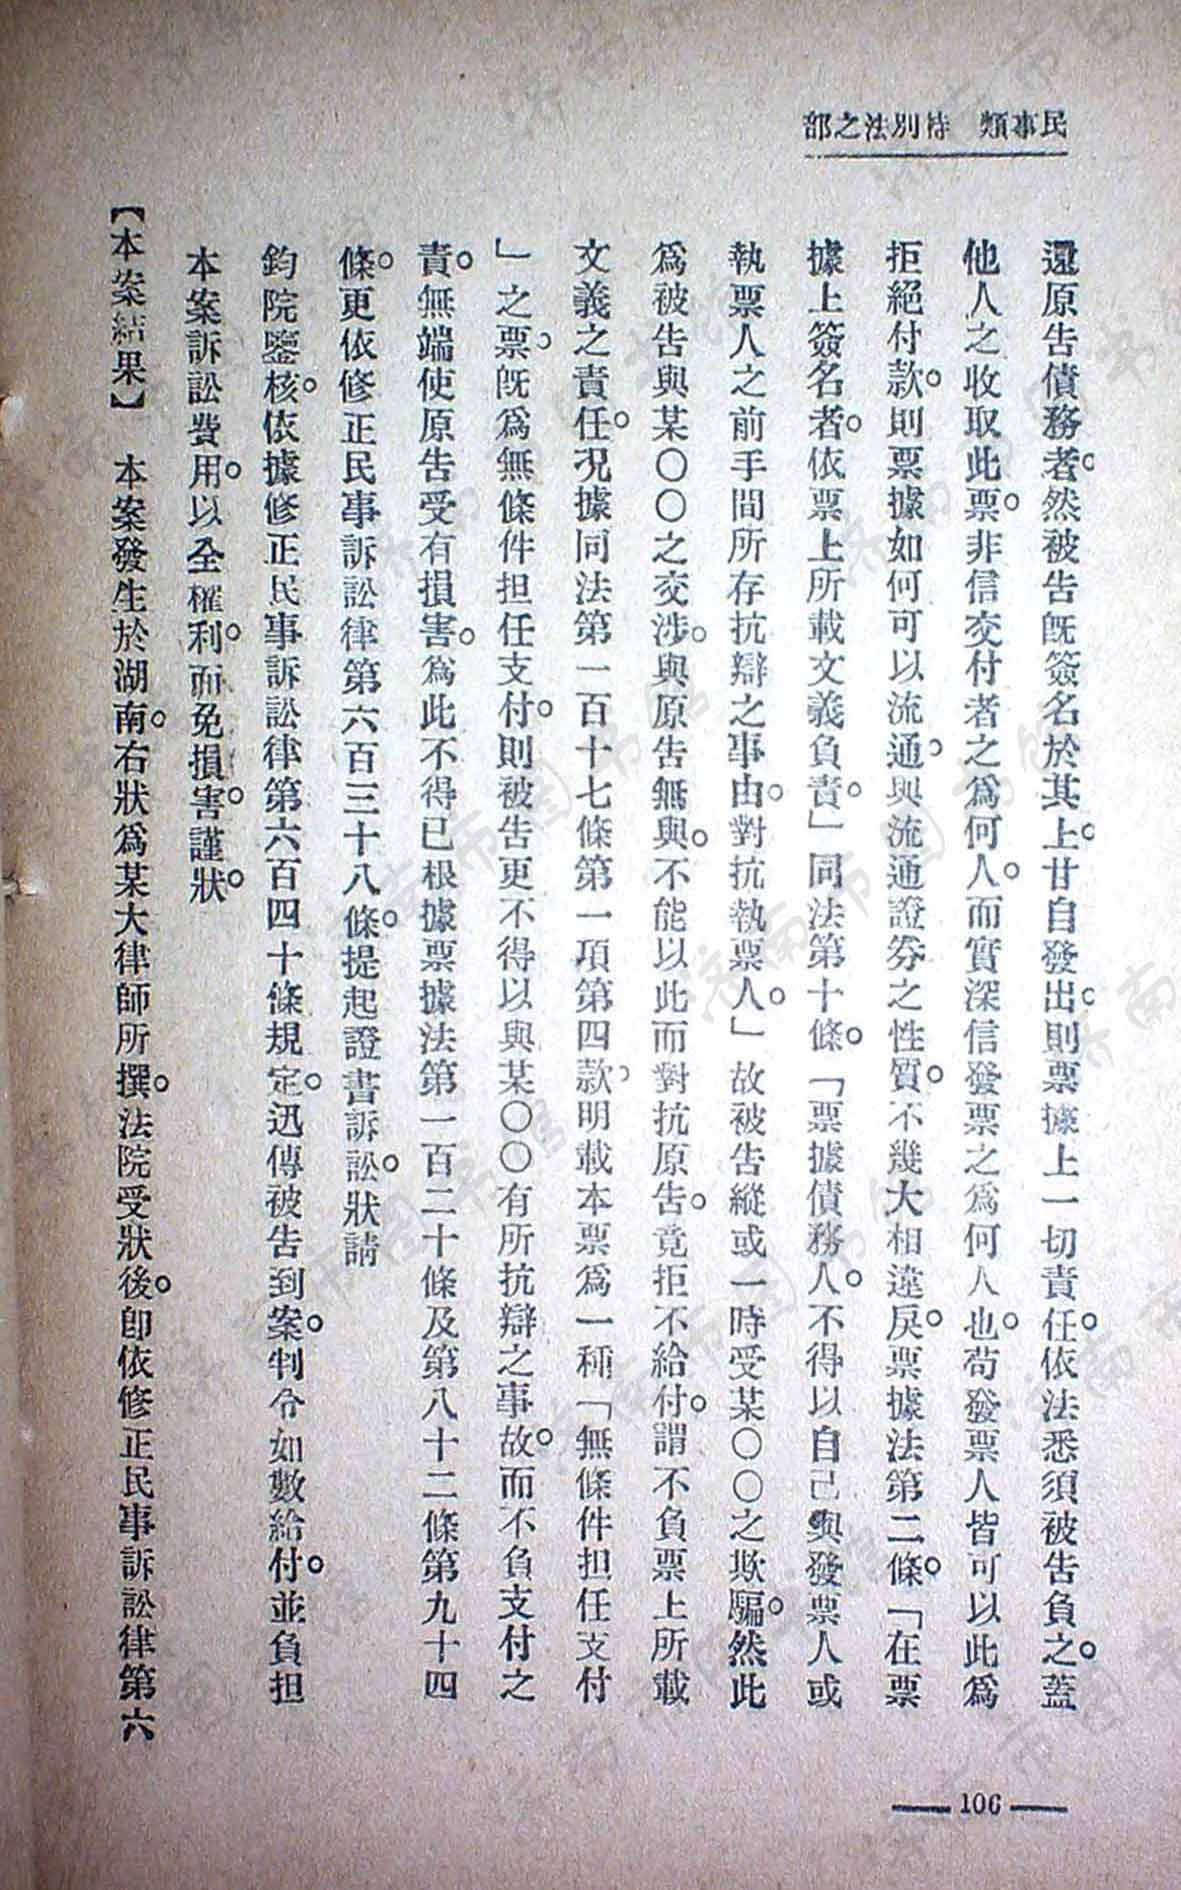 民事類　特別法之部
還原告債務者。然被告既簽名於其上。甘自發出。則票據上一切責任。依法悉須被告負之。蓋
他人之收取此票。非信交付者之爲何人。而實深信發票之爲何人也。苟發票人皆可以此爲
拒絕付款。則票據如何可以流通。與流通證券之性質。不幾大相違戾。票據法第二條。「在票
據上簽名者。依票上所載文義負責。」同法第十條。「票據債務人。不得以自己與發票人或
執票人之前手間所存抗辯之事由。對抗執票人。」故被告縱或一時受某〇〇之欺騙。然此
爲被告與某〇〇之交涉。與原告無與。不能以此而對抗原告。竟拒不給付。謂不負票上所載
文義之責任。况據同法第一百十七條第一項第四款。明載本票爲一種「無條件担任支付
」之票。既爲無條件担任支付。則被告更不得以與某〇〇有所抗辯之事故。而不負支付之
責。無端使原告受有損害。爲此不得已根據票據法第一百二十條及第八十二條第九十四
條。更依修正民事訴訟律第六百三十八條。提起證書訴訟。狀請
鈞院鑒核。依據修正民事訴訟律第六百四十條規定。迅傳被告到案。判令如數給付。並負担
本案訴訟費用。以全權利。而免損害。謹狀。
【本案結果】　本案發生於湖南。右狀爲某大律師所撰。法院受狀後。卽依修正民事訴訟律第六
106
济南市图书馆